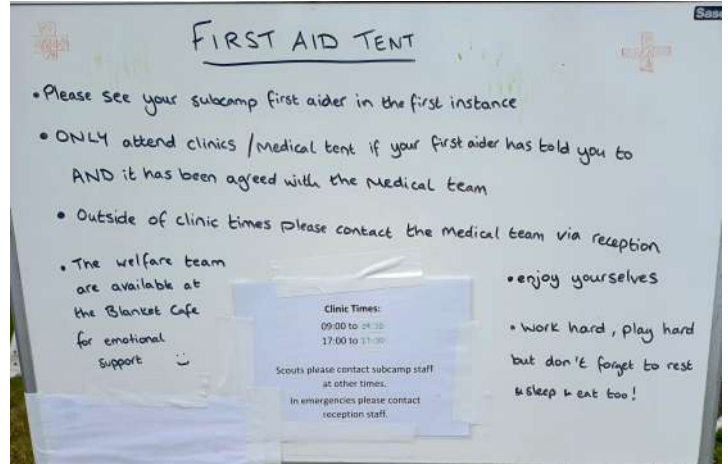 FIRST AID TENT
• Please see your subcamp first aider in the first instance
• ONLY attend clinics / Medical tent if your first aider has told you to
AND it has been agreed with the Medical team
• Outside of clinic times please contact the Medical team via reception
• The welfare team
are available at
the Blanket Cafe
for emotional
support
Clinic Times:
09:00 to
17:00 to
Scouts please contact subcamp staff
at other times.
In emergencies please contact
reception staff.
• enjoy yourselves
• Work hard, play hard
but don't forget to rest
& sleep & eat too!